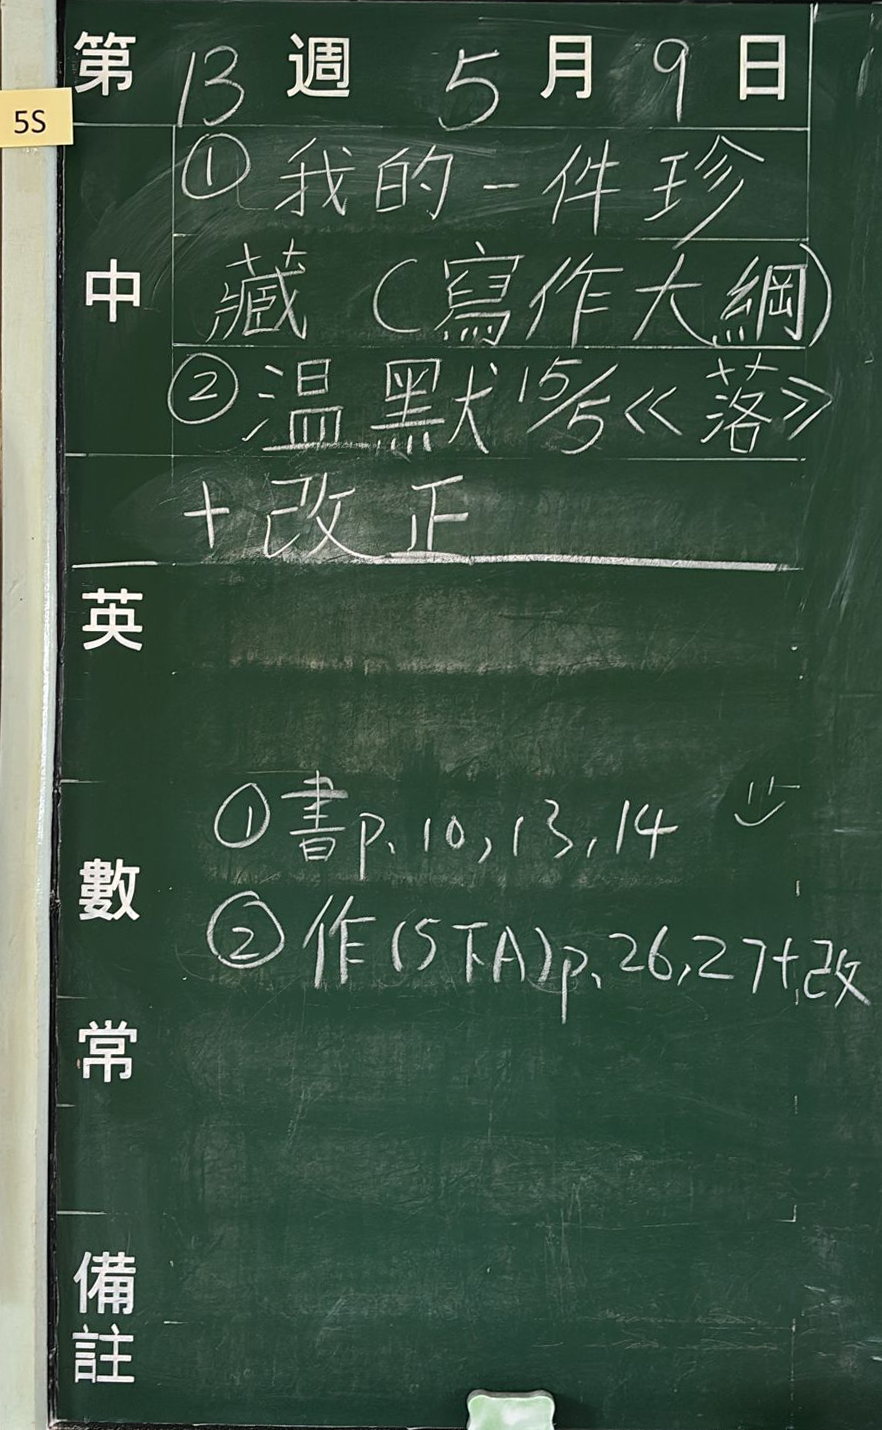 第 13 週 5 月 9 日
5S
中
① 我的一件珍
藏（寫作大綱）
② 温默 15/5 《落》
+ 改正
英
數
① 書p. 10, 13, 14
② 作(5下A)p. 26, 27+改
常
備註